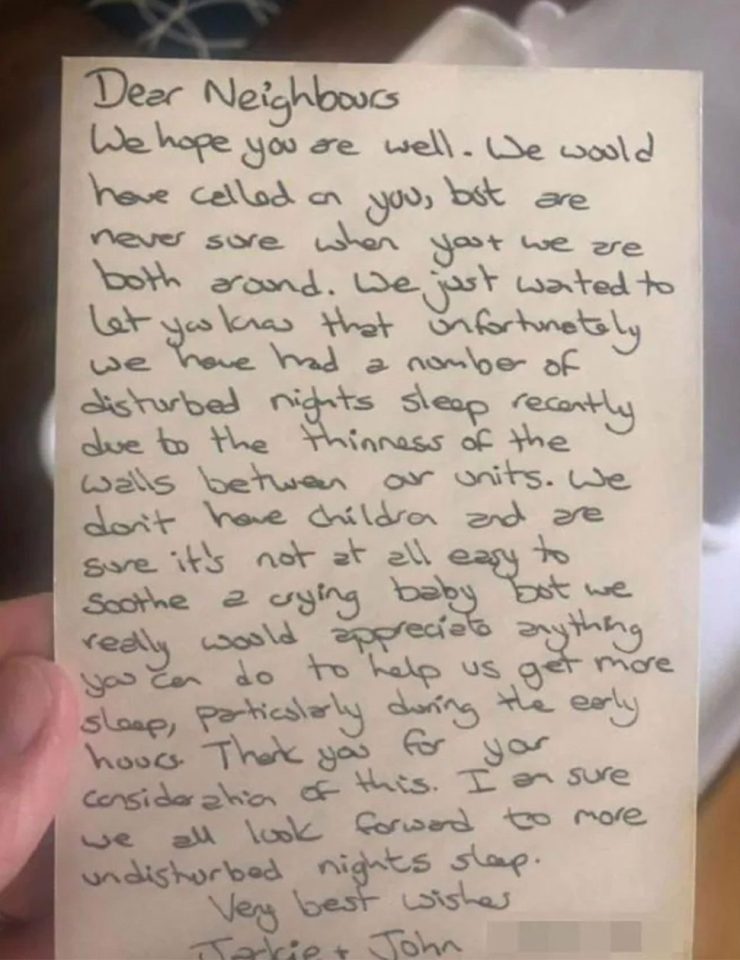 Dear Neighbours
We hope you are well. We would
have called on you, but are
never sure when you + we are
both around. We just wanted to
let you know that unfortunately
we have had a number of
disturbed nights sleep recently
due to the thinness of the
walls between our units. We
don't have children and are
sure it's not at all easy to
soothe a crying baby but we
really would appreciate anything
you can do to help us get more
sleep, particularly during the early
hours. Thank you for your
consideration of this. I am sure
we all look forward to more
undisturbed nights sleep.
Very best wishes
Jackie + John